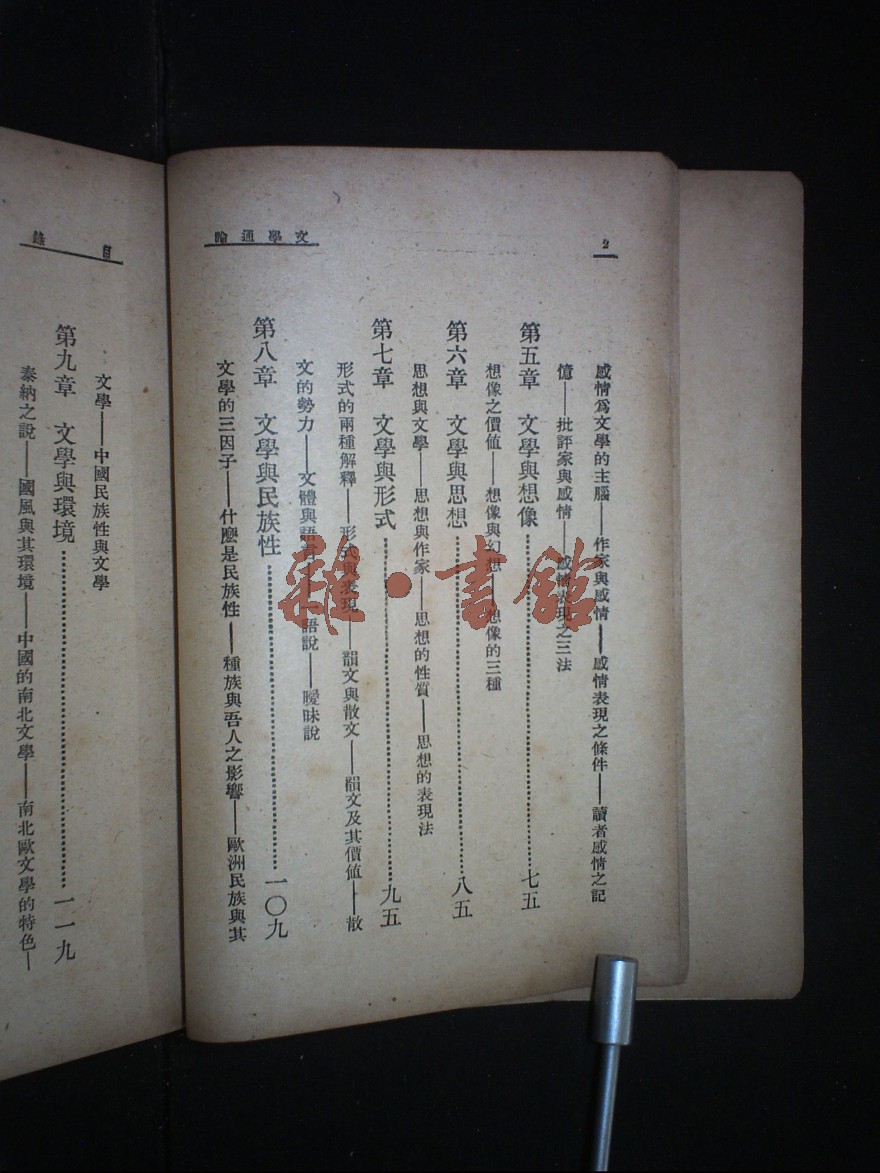 2
文學通論
感情為文學的主腦——作家與感情——感情表現之條件——讀者感情之記
憶——批評家與感情——感情表現之三法
第五章 文學與想像 七五
想像之價值——想像與幻想——想像的三種
第六章 文學與思想 八五
思想與文學——思想與作家——思想的性質——思想的表現法
第七章 文學與形式 九五
形式的兩種解釋——形式與表現——韻文與散文——韻文及其價値——散
文的勢力——文體與語言——一語說——曖昧說
第八章 文學與民族性 一〇九
文學的三因子——什麽是民族性——種族與吾人之影響——歐洲民族與其
目錄
文學——中國民族性與文學
第九章 文學與環境 一一九
泰納之說——國風與其環境——中國的南北文學——南北歐文學的特色—
雜·書館